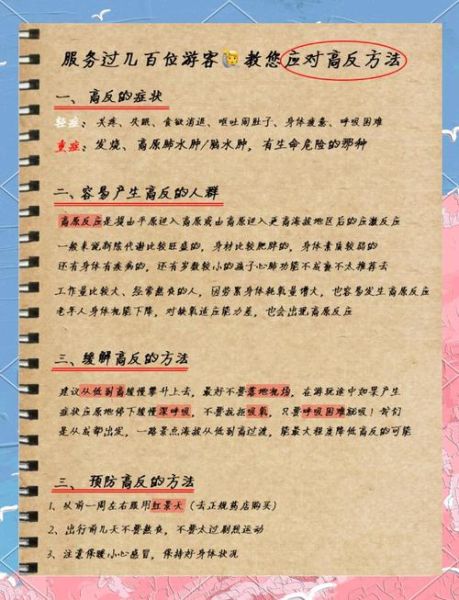 服务过几百位游客🙋教您应对高反方法
一、高反的症状
轻症：头疼、失眠、食欲消退、呕吐闹肚子、身体疲惫、呼吸困难
重症：发烧、高原肺水肿/脑水肿，有生命危险的那种
二、容易产生高反的人群
高原反应是指由平原进入高原或由高原进入更高海拔地区后的应激反应
一般来说新陈代谢比较旺盛的，身材比较肥胖的，身体素质较弱的
还有身体有疾病的，还有岁数较小的孩子心肺功能不成熟不太推荐去
工作量比较大、经常熬夜的人，因劳累身体耗氧量增大，也容易发生高原反应
老年人身体机能下降，对缺氧适应能力差，也会出现高原反应
三、缓解高反的方法
建议从低到高缓慢攀升上去，最好不要落地机场，在游玩途中如果产生
症状应原地停下缓慢深呼吸，不要抗拒吸氧，只要呼吸困难就吸！我们
是从成都出发，一路景点海拔从低到高过渡，能最大程度降低高反的可能
三、预防高反的方法
1、从前一周左右服用红景天（去正规药店购买）
2、出行前几天不要熬夜，不要太过剧烈运动
3、注意保暖小心感冒，保持好身体状况